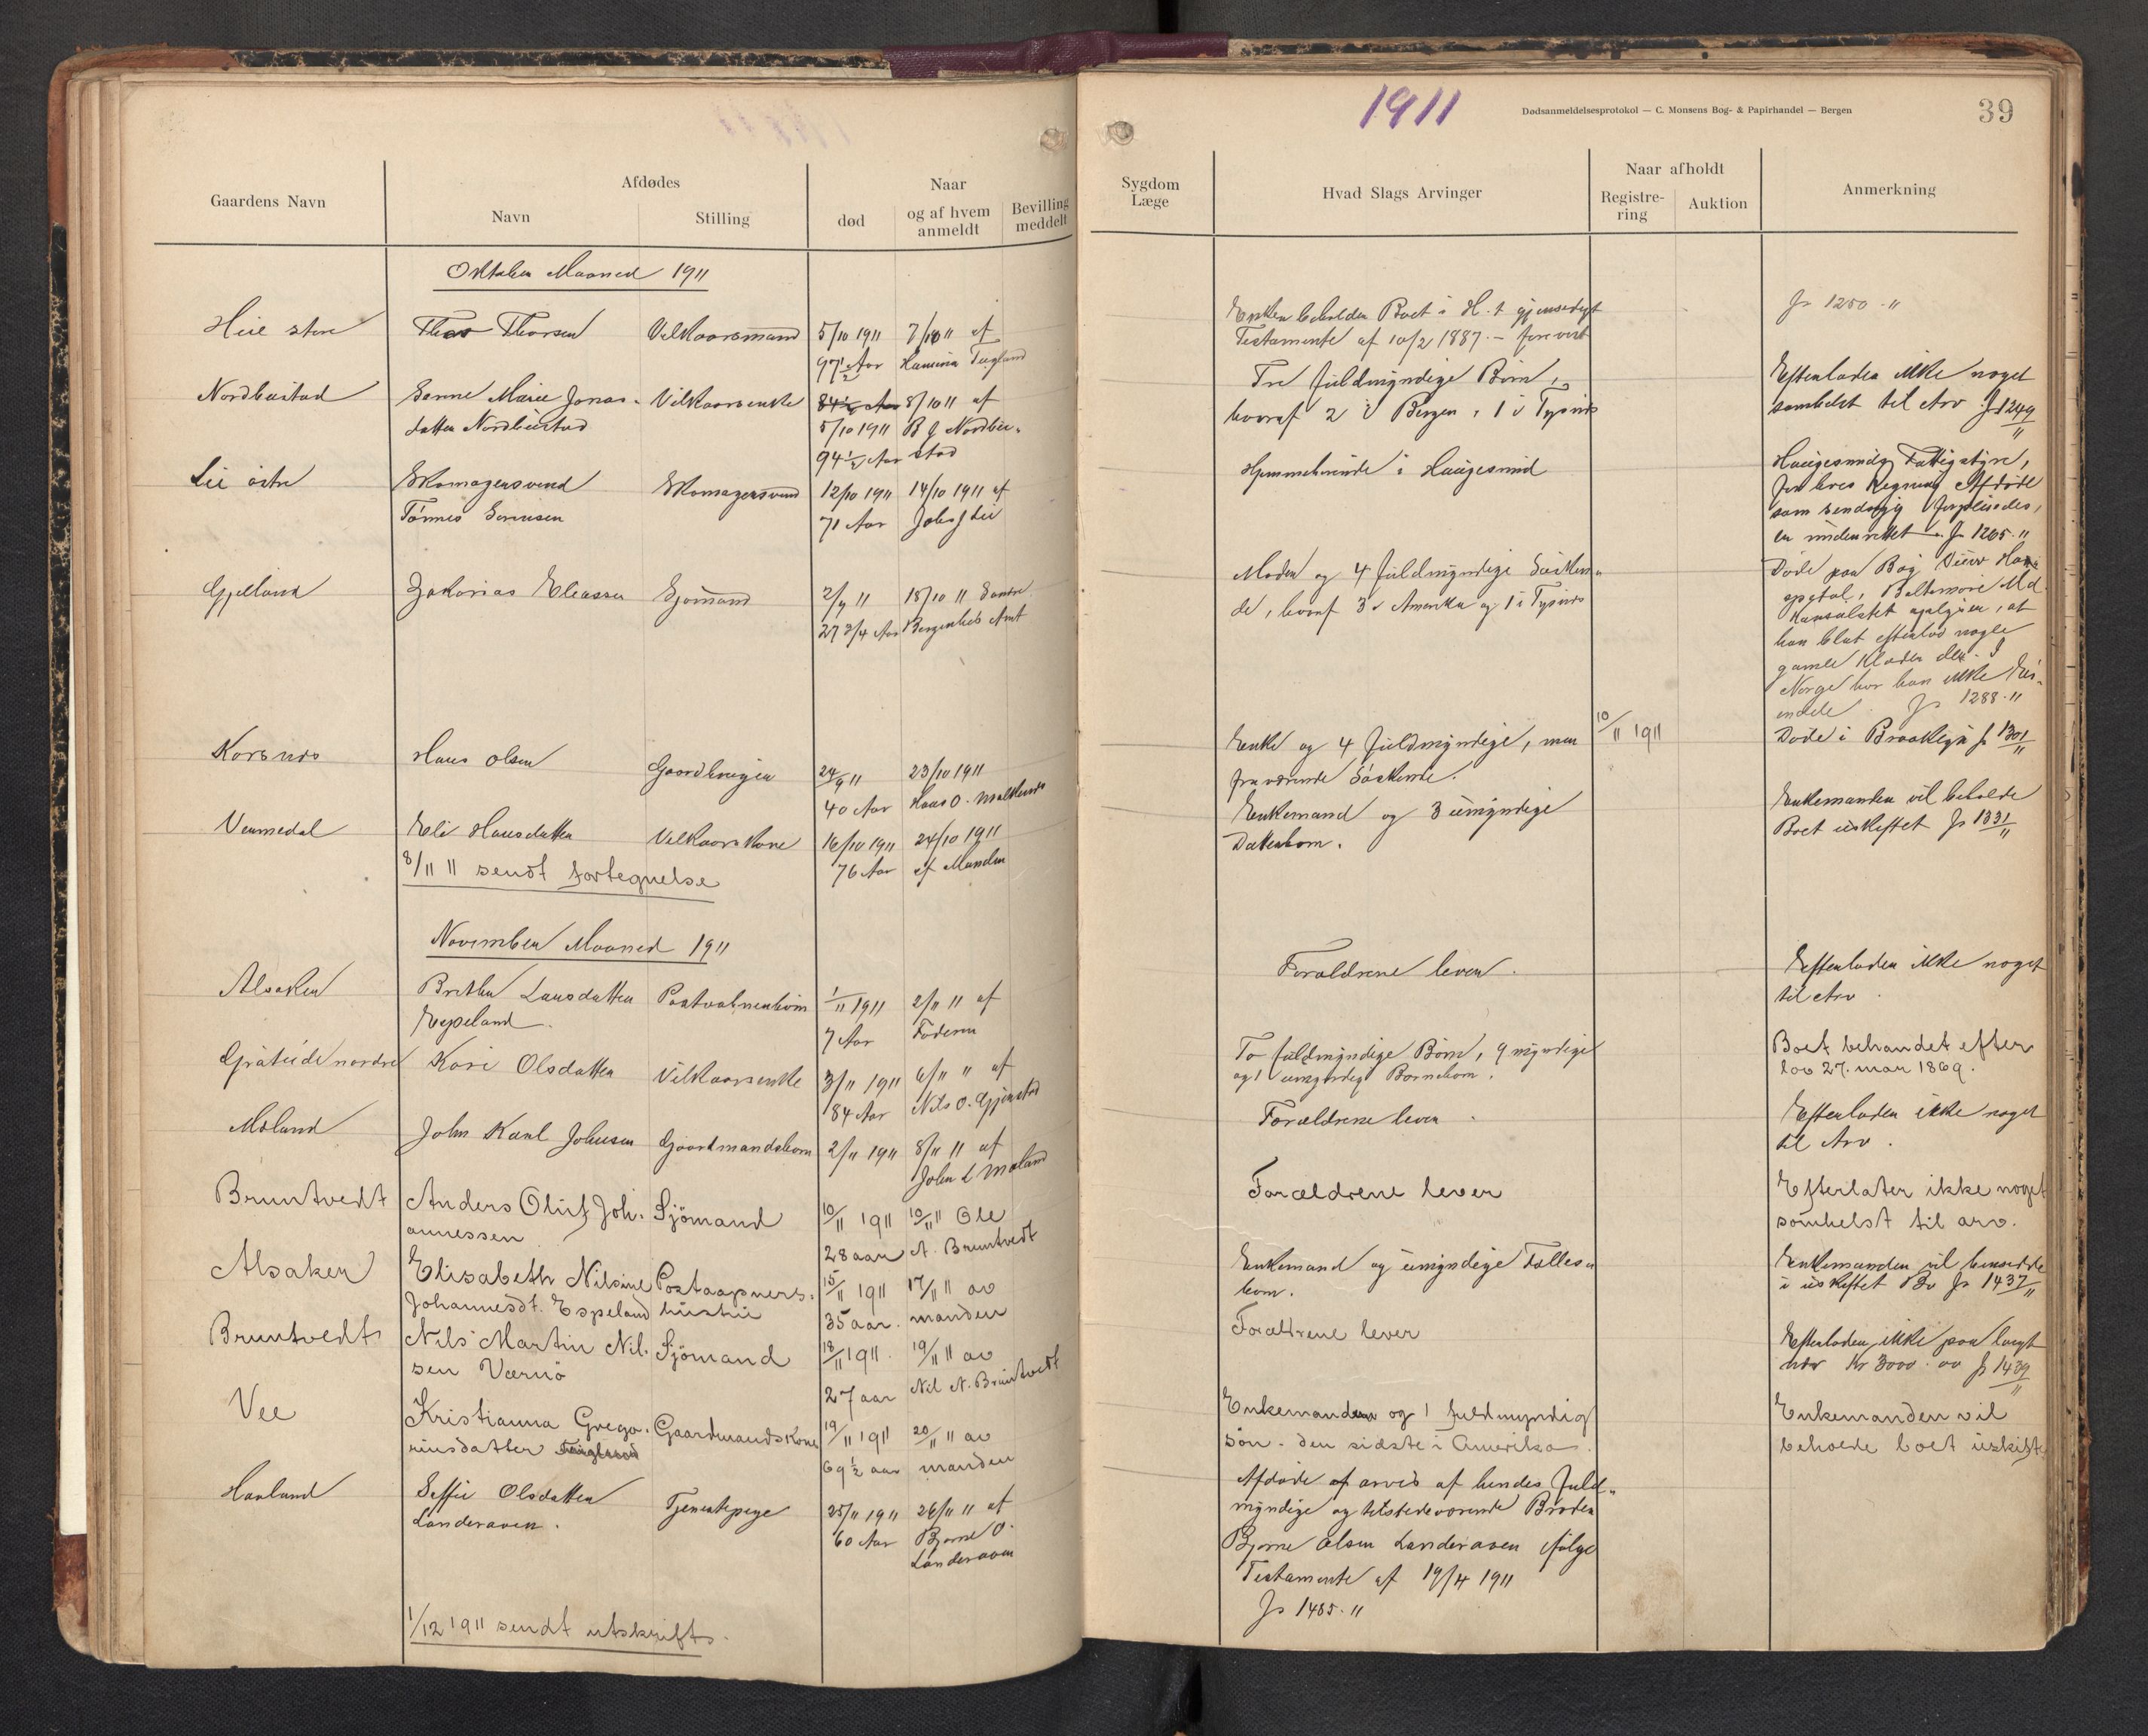 1911
Dødsanmeldelsesprotokol — C. Monsens Bog- & Papirhandel — Bergen
39
Gaardens Navn
Afdødes
Navn
Stilling
Naar
død
og af hvem anmeldt
Bevilling meddelt
Sygdom Læge
Hvad Slags Arvinger
Naar afholdt
Registre-ring
Auktion
Anmerkning
Oktober Maaned 1911
Thorsen Vilkaarsmand 5/10 1911 7/10 11 af
97½ Aar
Enken beholder Boet i H. t gjensidigt
Testamente af 10/2 1887. —
Jr 1250 . 11
Marie Jonas- Vilkaarsenke 84½ Aar 8/10 11 af
datter 5/10 1911
94½ Aar stad
Tre fuldmyndige Børn,
hvoraf 2 i Bergen, 1 i Tysnes
Efterlader ikke noget
somhelst til Arv Jr 1249/11
Lie østre Skomagersvend Skomagersvend 12/10 1911 14/10 1911 af
Tønnes Sørensen 71 Aar Lie
Hjemmehørende i Haugesund
Haugesunds Fattigstyre,
for hvis Regning Afdøde
som sindssyg forpleiedes,
er underrettet. Jr 1265. 11
Gjelland Zakarias Eliassen Sjømand 2/9 11 18/10 11 Søndre
27 3/4 Aar Bergenhus Amt
Moder og 4 fuldmyndige Søsken-
de, hvoraf 3 i Amerika og 1 i Tysnes
Døde paa Bay View Hos-
pital, Baltimore Md
Konsulatet oplyser, at
han blot efterlod nogle
gamle Klæder der. I
Norge har han ikke Ei-
endele Jr 1288. 11
Korsnes Hans Olsen Gaardbruger 24/9 11 23/10 1911
40 Aar Hans O.
Enke og 4 fuldmyndige, men
fraværende Søskende.
10/11 1911
Døde i Brooklyn Jr 1301/11
Vernedal Eli Hansdatter Vilkaarskone 16/10 1911 24/10 1911
76 Aar af Manden
Enkemand og 3 umyndige
Datterbørn.
Enkemanden vil beholde
Boet uskiftet Jr 1331/11
8/11 11 sendt fortegnelse
November Maaned 1911
Alsaker Brithe Larsdatter 1/11 1911 2/11 11 af
Espeland 7 Aar Faderen
Forældrene lever.
Efterlader ikke noget
til Arv.
nordre Kari Olsdatter Vilkaarsenke 3/11 1911 6/11 11 af
84 Aar Nils O.
To fuldmyndige Børn, 9 myndige
og 1 umyndig Børnebørn.
Boet behandlet efter
lov 27. mar 1869.
Moland John Karl Johnsen Gaardmandsbarn 2/11 1911 8/11 11 af
John L Moland
Forældrene lever.
Efterlader ikke noget
til Arv.
Bruntvedt Anders Oluf Joh- Sjömand 10/11 1911 10/11 11 Ole
annessen 28 aar A. Bruntvedt
Forældrene lever
Efterlater ikke noget
somhelst til arv.
Alsaker Elisabeth Nilsine Postaapners- 15/11 1911 17/11 11 av
Johannesdt. Espeland hustru 35 aar. manden
Enkemand og umyndige Fælles-
børn.
Enkemanden vil hensidde
i uskiftet Bo Jr 1437/11
Bruntvedt Nils Martin Nil- Sjömand 18/11 1911. 19/11 11 av
sen Værnö 27 aar Nil N. Bruntvedt
Forældrene lever
Efterlader ikke paa langt
nær Kr 3000.00 Jr 1439/11
Vee Kristianna Grego- Gaardmandskone 19/11 1911 20/11 11 av
riusdatter 69½ aar manden
Enkemanden og 1 fuldmyndig
sön - den sidste i Amerika.
Enkemanden vil
beholde boet uskift
Haaland Olsdatter Tjenestepige 25/11 1911 26/11 11 af
Landeraaen. 60 Aar Bjørne O.
Landeraaen
Afdøde arves af hendes fuld-
myndige og tilstedeværende Broder
Bjørne Olsen Landeraaen ifølge
Testamente af 19/4 1911
Jr 1485. 11
1/12 1911 sendt utskrift.